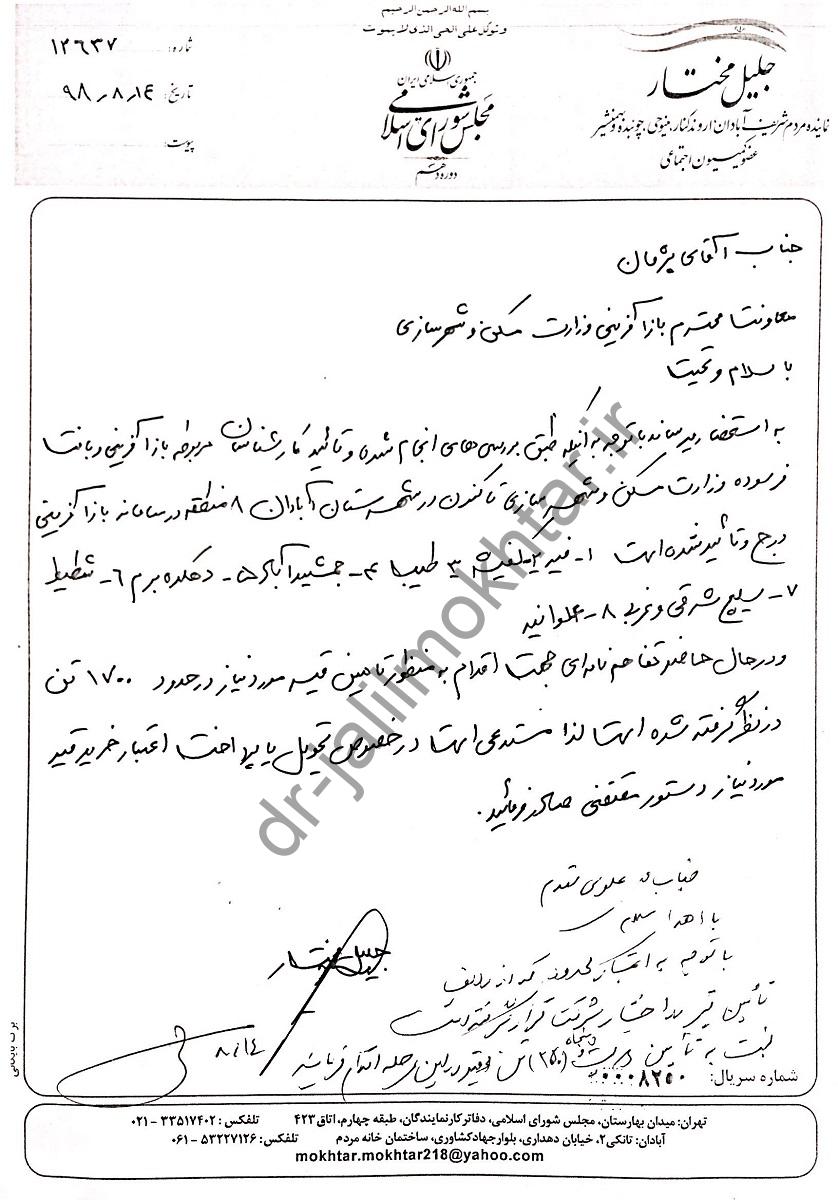 بسم الله الرحمن الرحیم
وتوکل علی الحی الذی لایموت
جمهوری اسلامی ایران
مجلس شورای اسلامی
دوره دهم
جلیل مختار
نماینده مردم شریف آبادان، اروندکنار، مینوحی، چوئبده و بهمنشیر
عضو کمیسیون اجتماعی
شماره: ۱۲۶۳۷
تاریخ: ۹۸٫۸٫۱۴
پیوست:
جناب آقای پژمان
معاونت محترم بازآفرینی وزارت مسکن و شهرسازی
با سلام و تحیت
به استحضار میرساند با توجه به اینکه طبق بررسی های انجام شده و تائید کارشناسان مربوطه بازآفرینی و بافت
فرسوده وزارت مسکن و شهرسازی تاکنون در شهرستان آبادان ۸ منطقه در سامانه بازآفرینی
درج و تائید شده است ۱- فیه ۲- کفیشه ۳- طیب ۴- جمشیدآباد ۵- دهکده برم ۶- شطیط
۷- سلیچ شرقی و غربی ۸- علوانیه
و در حال حاضر تفاهم نامه ای جهت اقدام به منظور تامین قیر مورد نیاز در حدود ۱۷۰۰ تن
در نظر گرفته شده است لذا مستدعی است در خصوص تحویل یا پرداخت اعتبار خرید قیر
مورد نیاز دستور مقتضی صادر فرمائید.
جلیل مختار
جناب علوی مقدم
با اهدا سلام
با توجه به اعتبار محدود که از ردیف
تأمین قیر در اختیار شرکت قرار گرفته است
نسبت به تأمین دویست و پنجاه (۲۵۰) تن قیر در این مرحله اقدام فرمایید
۸/۱۴
شماره سریال: ۰۰۰۸۲۵۰
تهران: میدان بهارستان، مجلس شورای اسلامی، دفاتر کار نمایندگان، طبقه چهارم، اتاق ۴۲۳ تلفکس: ۳۳۵۱۷۴۰۲ - ۰۲۱
آبادان: تانکی۲، خیابان دهداری، بلوار جهاد کشاورزی، ساختمان خانه مردم تلفکس: ۵۳۲۲۷۱۲۶ - ۰۶۱
mokhtar.mokhtar218@yahoo.com
dr-jalilmokhtar.ir